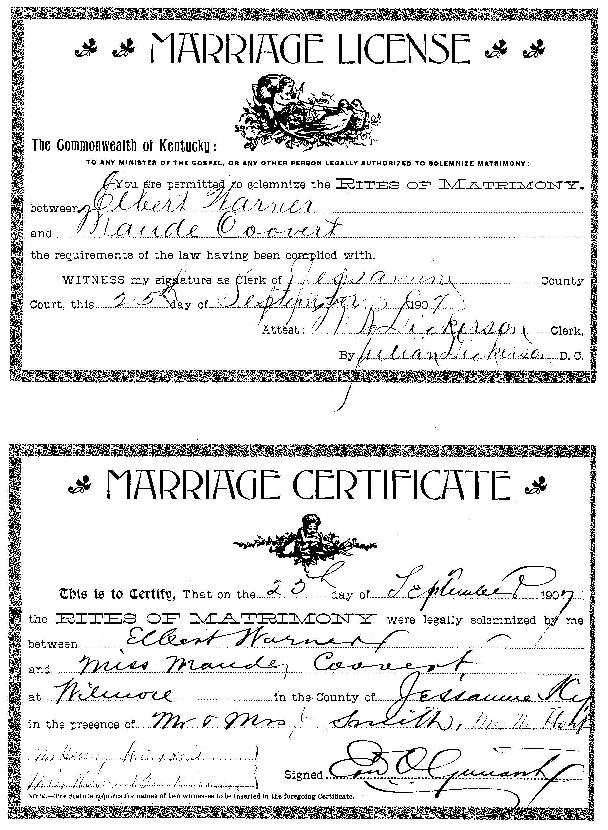 MARRIAGE LICENSE
The Commonwealth of Kentucky:
TO ANY MINISTER OF THE GOSPEL, OR ANY OTHER PERSON LEGALLY AUTHORIZED TO SOLEMNIZE MATRIMONY:
You are permitted to solemnize the RITES OF MATRIMONY,
between Elbert Warner
and Maude Coovert
the requirements of the law having been complied with.
WITNESS my signature as Clerk of Jessamine County
Court, this 25th day of September 1907
Attest: Dickerson Clerk,
By Dickerson D. C.
MARRIAGE CERTIFICATE
This is to Certify, That on the 25th day of September 1907
the RITES OF MATRIMONY were legally solemnized by me
between Elbert Warner
and Miss Maude Coovert
at Wilmore in the County of Jessamine Ky
in the presence of Mr & Mrs Smith,
Signed
NOTE.—The statute requires the names of two witnesses to be inserted in the foregoing Certificate.